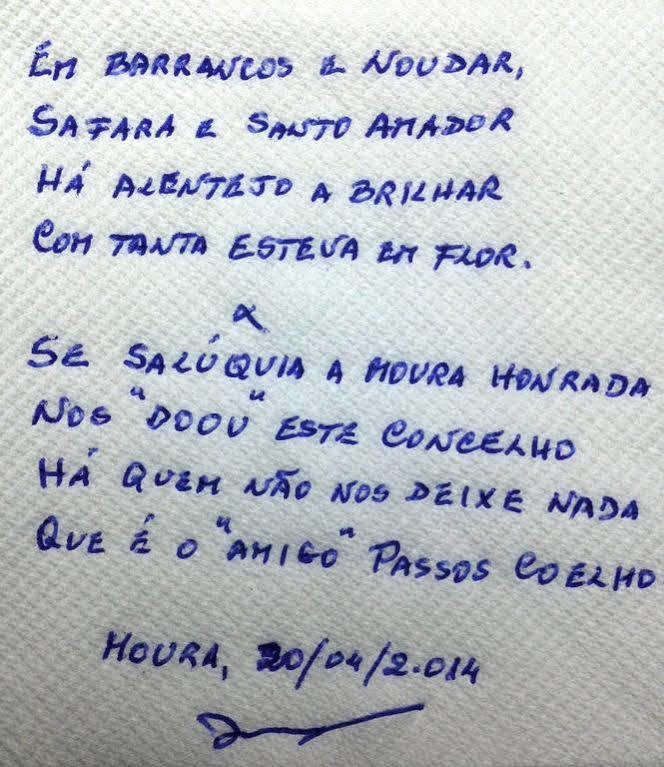 EM BARRANCOS E NOUDAR,
SAFARA E SANTO AMADOR
HÁ ALENTEJO A BRILHAR
COM TANTA ESTEVA EM FLOR.
SE SALÚQUIA A MOURA HONRADA
NOS "DOOU" ESTE CONCELHO
HÁ QUEM NÃO NOS DEIXE NADA
QUE É O "AMIGO" PASSOS COELHO
MOURA, 20/04/2.014